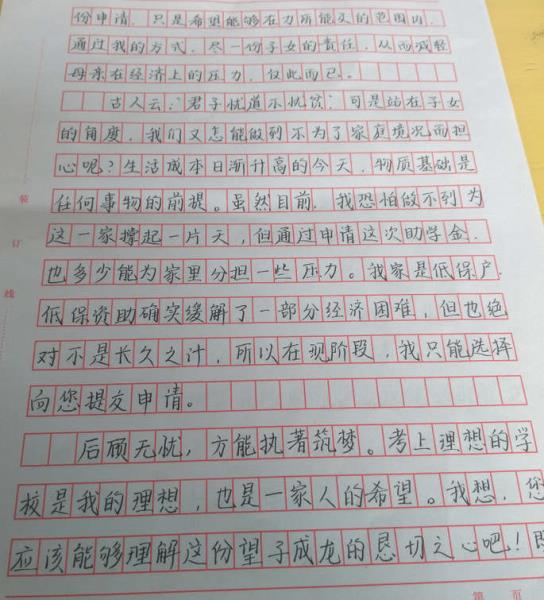 份申请,只是希望能够在力所能及的范围内,
通过我的方式,尽一份子女的责任,从而减轻
母亲在经济上的压力,仅此而已。
古人云:"君子忧道不忧贫",可是站在子女
的角度,我们又怎能做到不为了家庭境况而担
心呢?生活成本日渐升高的今天,物质基础是
任何事物的前提。虽然目前,我恐怕做不到为
这一家撑起一片天,但通过申请这次助学金,
也多少能为家里分担一些压力。我家是低保户,
低保资助确实缓解了一部分经济困难,但也绝
对不是长久之计,所以在现阶段,我只能选择
向您提交申请。
后顾无忧,方能执著筑梦。考上理想的学
校是我的理想,也是一家人的希望。我想,您
应该能够理解这份望子成龙的恳切之心吧!
装
订
线
第 页